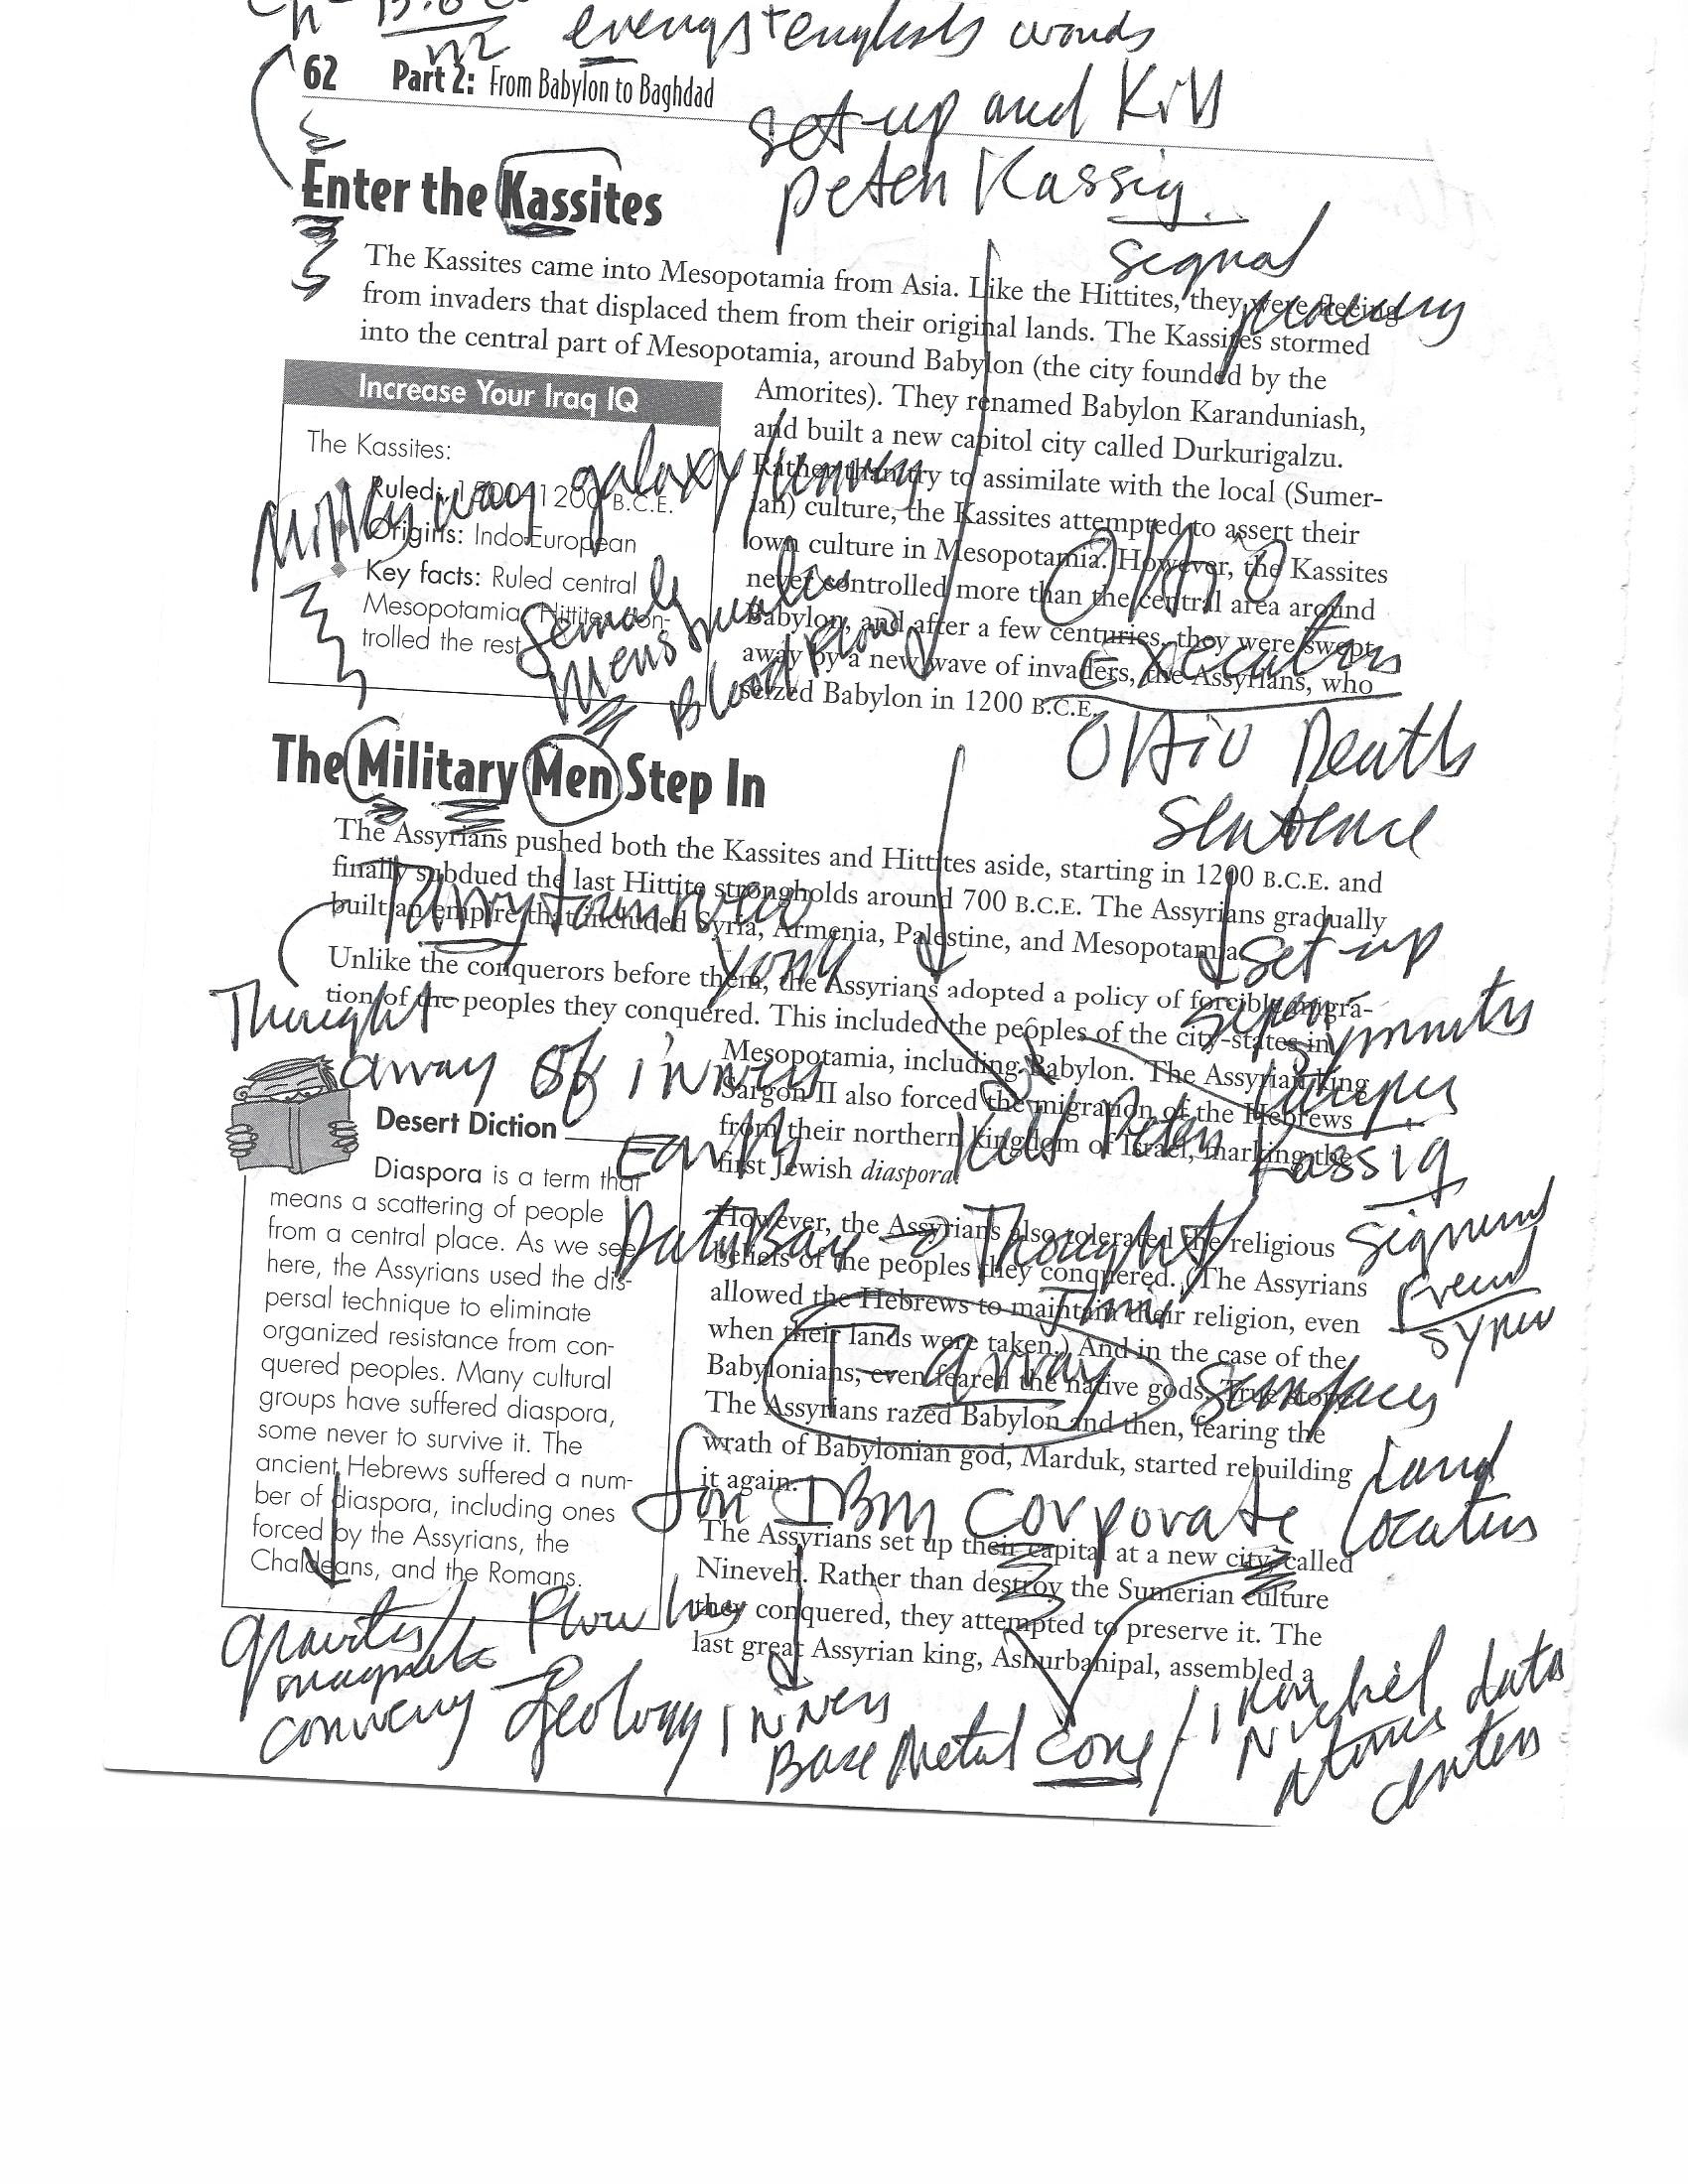 energy + english words
62 Part 2: From Babylon to Baghdad
set-up and Kill
Peter Kassig
signal
Enter the Kassites
The Kassites came into Mesopotamia from Asia. Like the Hittites, they were fleeing
from invaders that displaced them from their original lands. The Kassites stormed
into the central part of Mesopotamia, around Babylon (the city founded by the
Amorites). They renamed Babylon Karanduniash,
and built a new capitol city called Durkurigalzu.
Rather than try to assimilate with the local (Sumer-
ian) culture, the Kassites attempted to assert their
own culture in Mesopotamia. However, the Kassites
never controlled more than the central area around
Babylon, and after a few centuries, they were swept
away by a new wave of invaders, the Assyrians, who
seized Babylon in 1200 B.C.E.
Increase Your Iraq IQ
The Kassites:
Ruled: 1500–1200 B.C.E.
Origins: Indo-European
Key facts: Ruled central
Mesopotamia. Hittites con-
trolled the rest
Milky way galaxy
female
Blood Flow
OHIO
Execution
OHIO Death
Sentence
The Military Men Step In
The Assyrians pushed both the Kassites and Hittites aside, starting in 1200 B.C.E. and
finally subdued the last Hittite strongholds around 700 B.C.E. The Assyrians gradually
built an empire that included Syria, Armenia, Palestine, and Mesopotamia.
Unlike the conquerors before them, the Assyrians adopted a policy of forcible migra-
tion of the peoples they conquered. This included the peoples of the city-states in
Mesopotamia, including Babylon. The Assyrian king
Sargon II also forced the migration of the Hebrews
from their northern kingdom of Israel, marking the
first Jewish diaspora.
However, the Assyrians also tolerated the religious
beliefs of the peoples they conquered. (The Assyrians
allowed the Hebrews to maintain their religion, even
when their lands were taken.) And in the case of the
Babylonians, even feared the native gods. True story:
The Assyrians razed Babylon and then, fearing the
wrath of Babylonian god, Marduk, started rebuilding
it again.
The Assyrians set up their capital at a new city, called
Nineveh. Rather than destroy the Sumerian culture
they conquered, they attempted to preserve it. The
last great Assyrian king, Ashurbanipal, assembled a
Desert Diction
Diaspora is a term that
means a scattering of people
from a central place. As we see
here, the Assyrians used the dis-
persal technique to eliminate
organized resistance from con-
quered peoples. Many cultural
groups have suffered diaspora,
some never to survive it. The
ancient Hebrews suffered a num-
ber of diaspora, including ones
forced by the Assyrians, the
Chaldeans, and the Romans.
set-up
Thought
away of inner
Earth
Kill Peter Kassig
Data Base → Thought
T-array surfaces
for IBM Corporate
Land
Location
Flow
Geology inner
Base Metal core / iron
Nickel data
Atoms centers